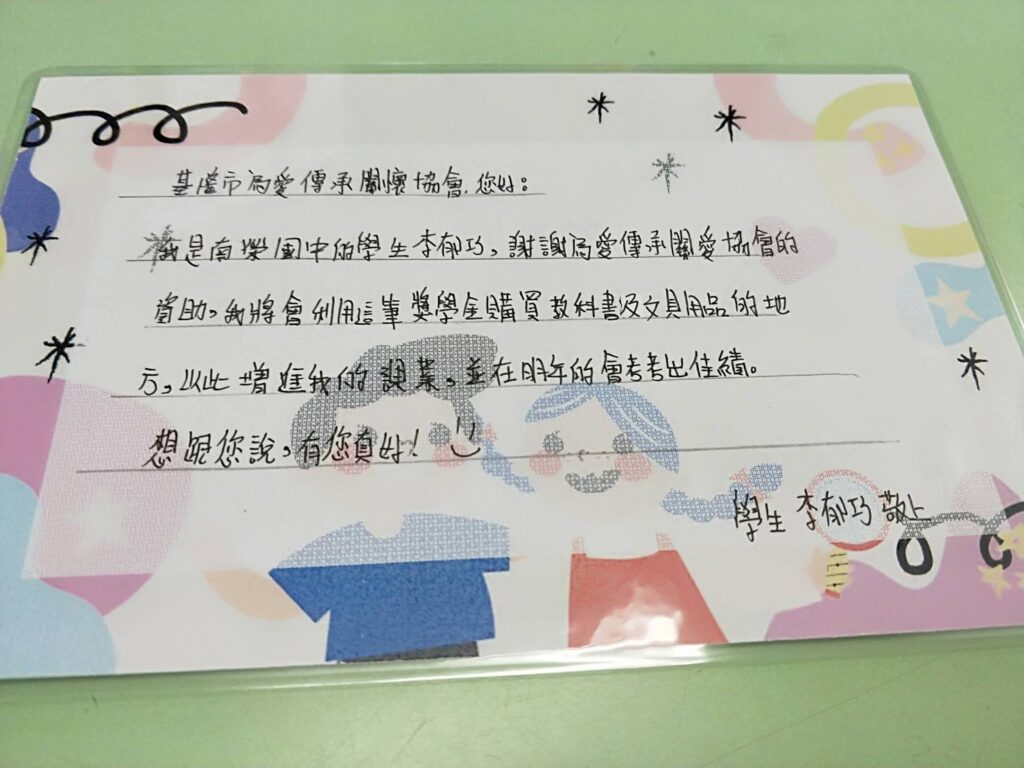 基隆市為愛傳承關懷協會,您好:
我是南榮國中的學生李郁巧,謝謝為愛傳承關愛協會的
資助。我將會利用這筆獎學金購買教科書及文具用品的地
方,以此增進我的課業,並在明年的會考考出佳績。
想跟您說,有您真好!
學生 李郁巧 敬上